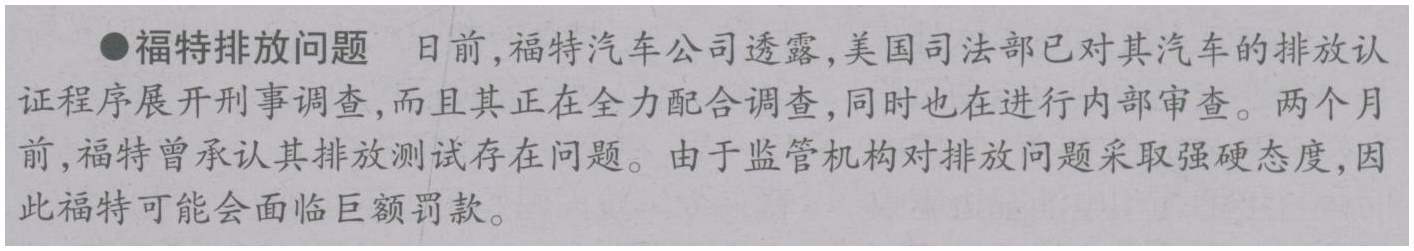 ●福特排放问题　日前,福特汽车公司透露,美国司法部已对其汽车的排放认
证程序展开刑事调查,而且其正在全力配合调查,同时也在进行内部审查。两个月
前,福特曾承认其排放测试存在问题。由于监管机构对排放问题采取强硬态度,因
此福特可能会面临巨额罚款。